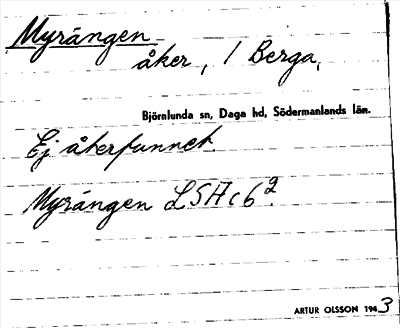 Myrängen
åker, / Berga,
Björnlunda sn, Daga hd, Södermanlands län.
Ej återfunnet.
Myrängen LSHc6².
ARTUR OLSSON 1963